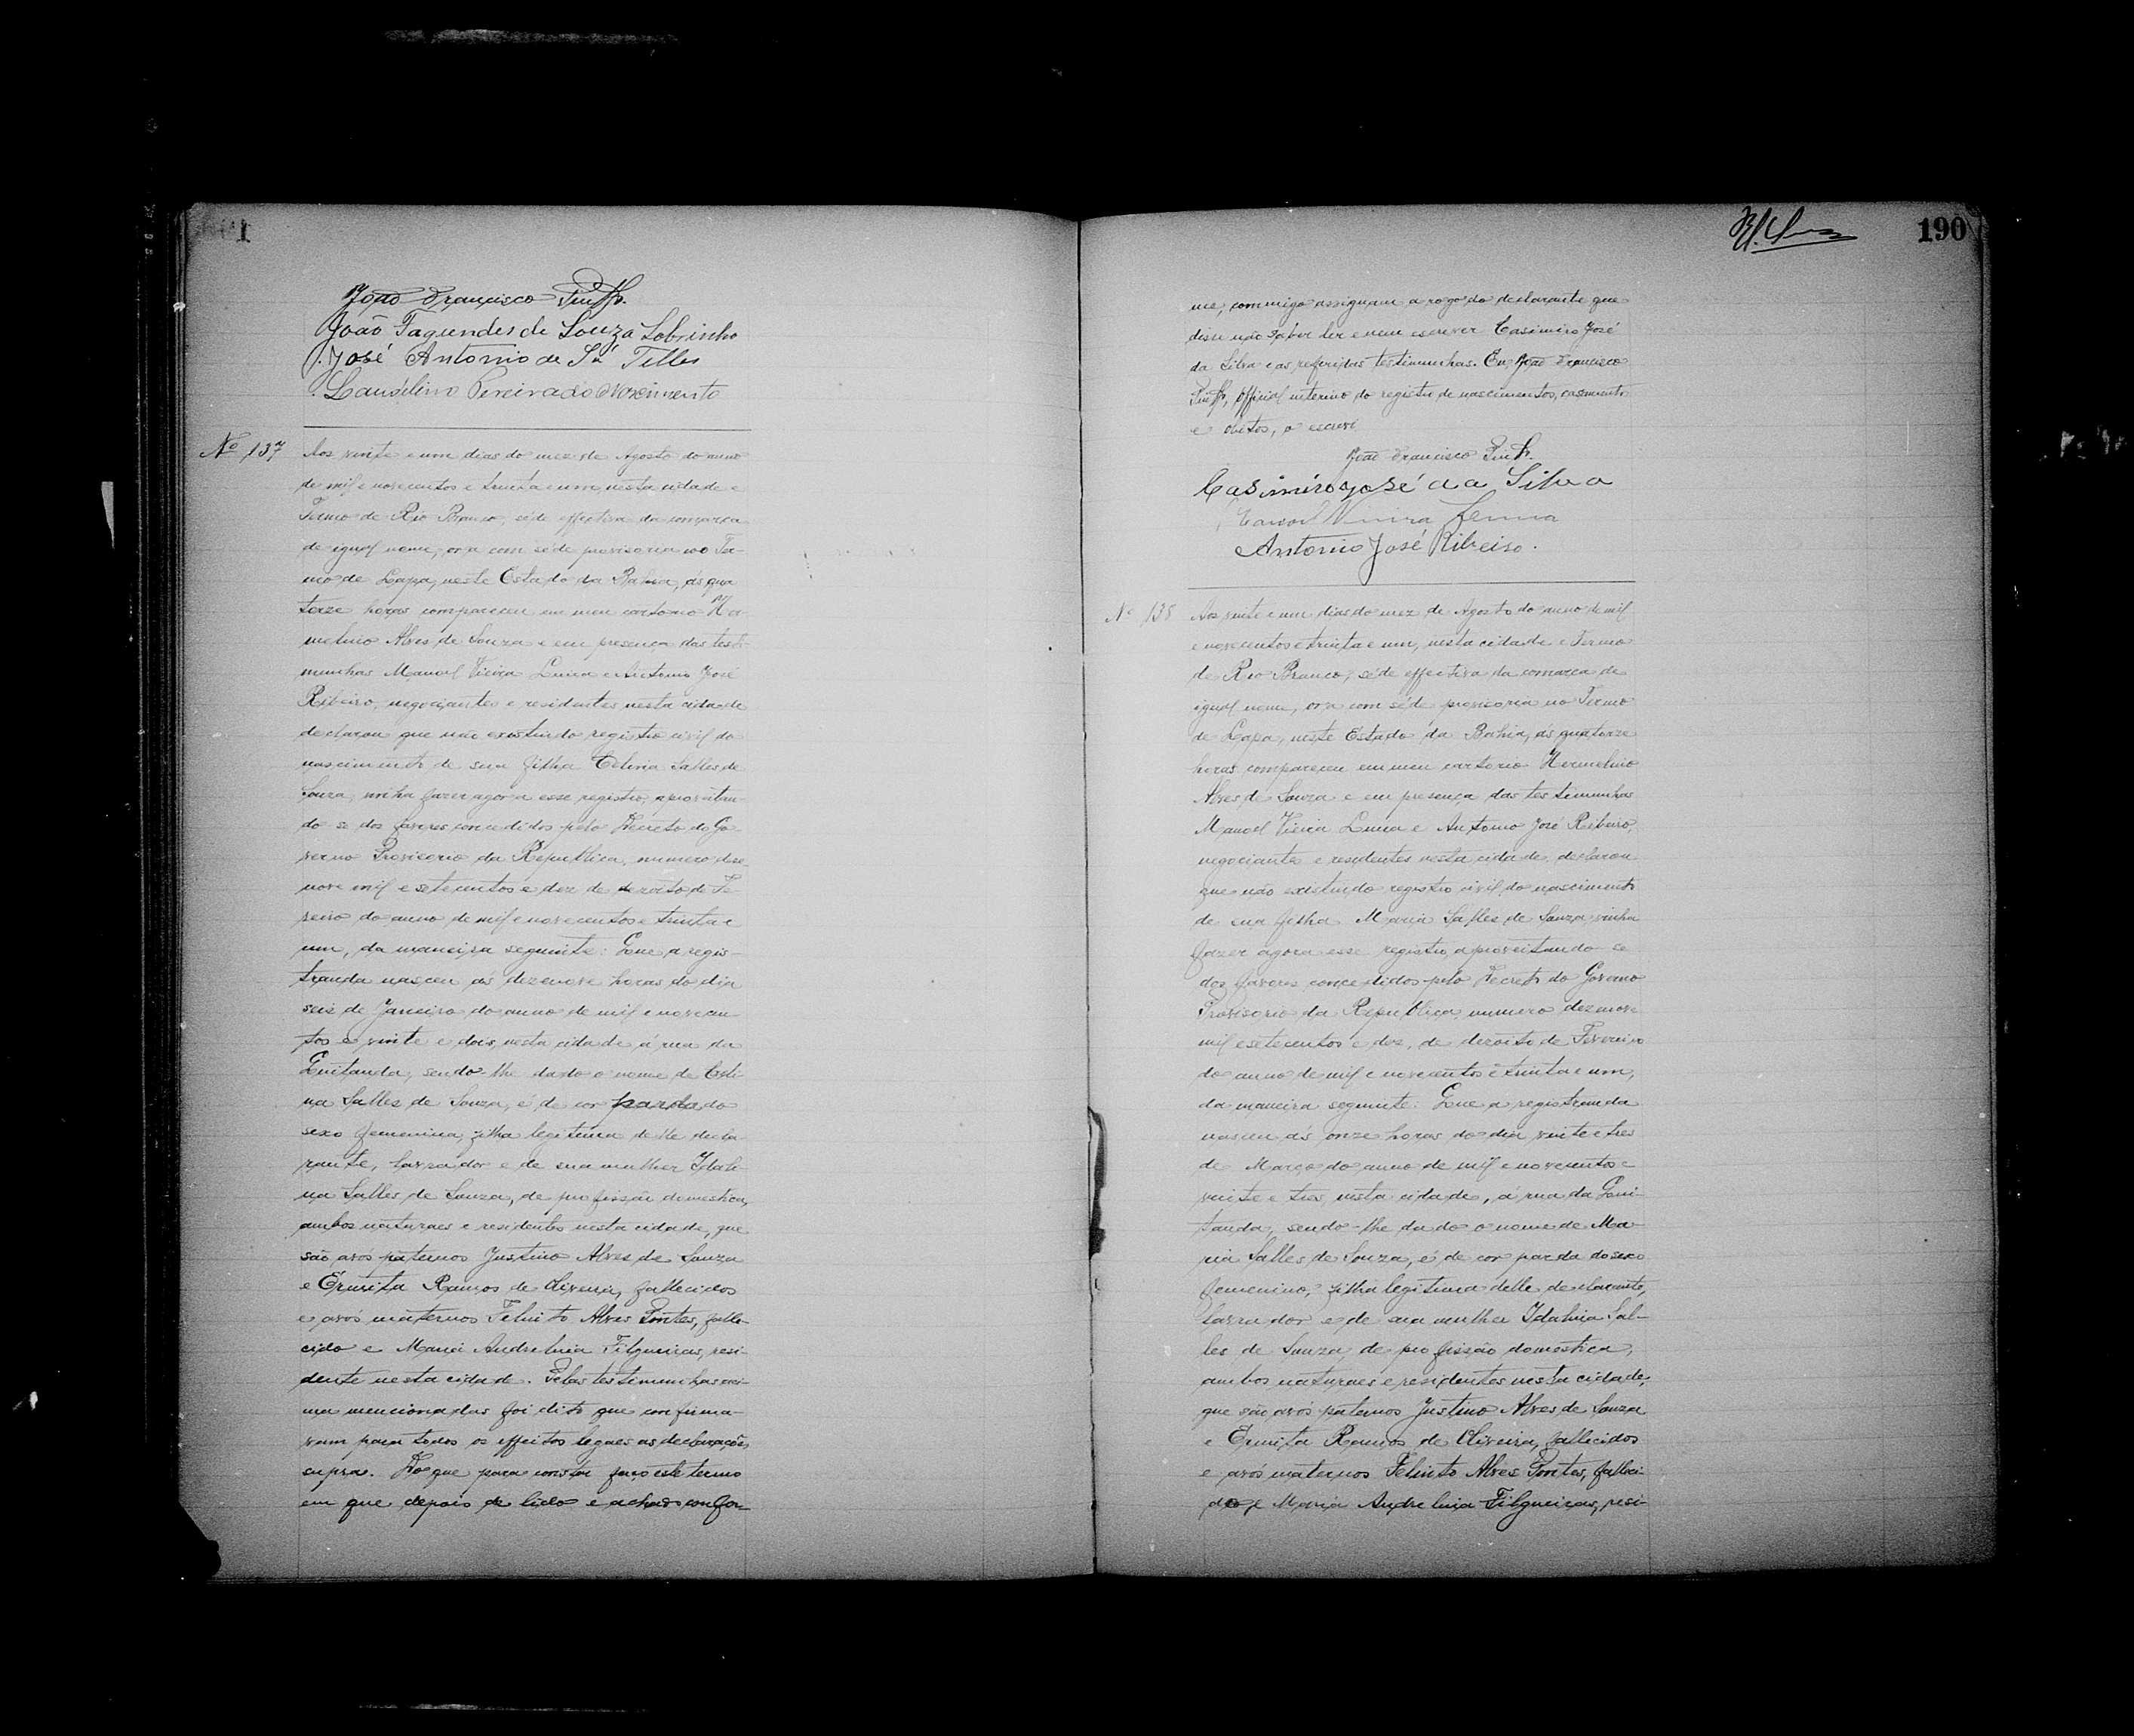 190
João Francisco
João Fagundes de Souza Sobrinho
José Antonio de Sá Telles
Lauselino Pereira do Nascimento
Nº 137
Aos vinte e um dias do mez de Agosto do anno
de mil e novecentos e trinta e um, nesta cidade e
Termo de Rio Branco, séde effectiva da comarca
de igual nome, ora com séde provisoria no Ter-
mo de Lapa, neste Estado da Bahia, ás qua
torze horas compareceu em meu cartorio Her-
melino Alves de Souza e em presença das teste-
munhas Manoel Vieira Lima e Antonio José
Ribeiro, negociantes e residentes nesta cidade
declarou que não existindo registro civil do
nascimento de sua filha Celina Salles de
Souza, vinha fazer agora esse registro, aproveitan-
do-se dos favores concedidos pelo Decreto do Go-
verno Provisorio da Republica, numero deze-
nove mil e setecentos e dez de dezoito de Fe-
vereiro do anno de mil e novecentos e trinta e
um, da maneira seguinte: Que a regis-
tranda nasceu ás dezenove horas do dia
seis de Janeiro do anno de mil e novecen-
tos e vinte e dois, nesta cidade á rua da
Quitanda, sendo-lhe dado o nome de Celi-
na Salles de Souza, é de cor parda, do
sexo femenino, filha legitima delle decla-
rante, lavrador e de sua mulher Idali-
na Salles de Souza, de profissão domestica,
ambos naturaes e residentes nesta cidade, que
são avós paternos Justino Alves de Souza
e Ermita Ramos de Oliveira, fallecidos
e avós maternos Felinto Alves Pontes, falle-
cido e Maria Andrelina Filgueiras, resi-
dente nesta cidade. Pelas testemunhas aci-
ma mencionadas foi dito que confirma-
vam para todos os effeitos legaes as declarações
supra. Do que para constar faço este termo
em que depois de lido e achado confor-
me, commigo assignam a rogo do declarante que
disse não saber ler e nem escrever Casimiro José
da Silva e as referidas testemunhas. Eu, João Francisco
official interino do registro de nascimentos, casamentos
e obitos, o escrevi
João Francisco
Casimiro José da Silva
Manoel Vieira Lima
Antonio José Ribeiro.
Nº 138
Aos vinte e um dias do mez de Agosto do anno de mil
e novecentos e trinta e um, nesta cidade e Termo
de Rio Branco, séde effectiva da comarca de
igual nome, ora com séde provisoria no Termo
de Lapa, neste Estado da Bahia, ás quatorze
horas compareceu em meu cartorio Hermelino
Alves de Souza e em presença das testemunhas
Manoel Vieira Lima e Antonio José Ribeiro,
negociantes e residentes nesta cidade, declarou
que não existindo registro civil do nascimento
de sua filha Maria Salles de Souza vinha
fazer agora esse registro, aproveitando-se
dos favores concedidos pelo Decreto do Governo
Provisorio da Republica, numero dezenove
mil e setecentos e dez, de dezoito de Fevereiro
do anno de mil e novecentos e trinta e um,
da maneira seguinte: Que a registranda
nasceu ás onze horas do dia vinte e tres
de Março do anno de mil e novecentos e
vinte e tres, nesta cidade, á rua da Qui-
tanda, sendo-lhe dado o nome de Ma-
ria Salles de Souza, é de cor parda do sexo
femenino, filha legitima delle declarante,
lavrador e de sua mulher Idalina Sal-
les de Souza, de profissão domestica,
ambos naturaes e residentes nesta cidade,
que são avós paternos Justino Alves de Souza
e Ermita Ramos de Oliveira, fallecidos
e avós maternos Felinto Alves Pontes, falleci-
do e Maria Andrelina Filgueiras, resi-